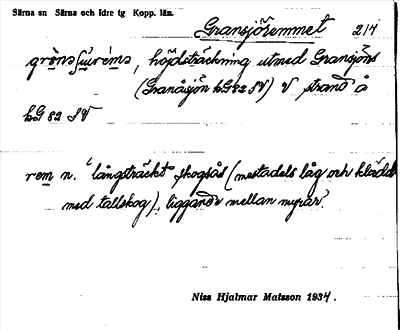 Särna sn Särna och Idre tg Kopp. län.
Gransjöremmet 214
höjdsträckning utmed Gransjöns
(Granåsjön kG 82 SV) V strand å
kG 82 SV
rem n. "långsträckt skogsås (mestadels låg och klädd
med tallskog), liggande mellan myrar."
Niss Hjalmar Matsson 1934.